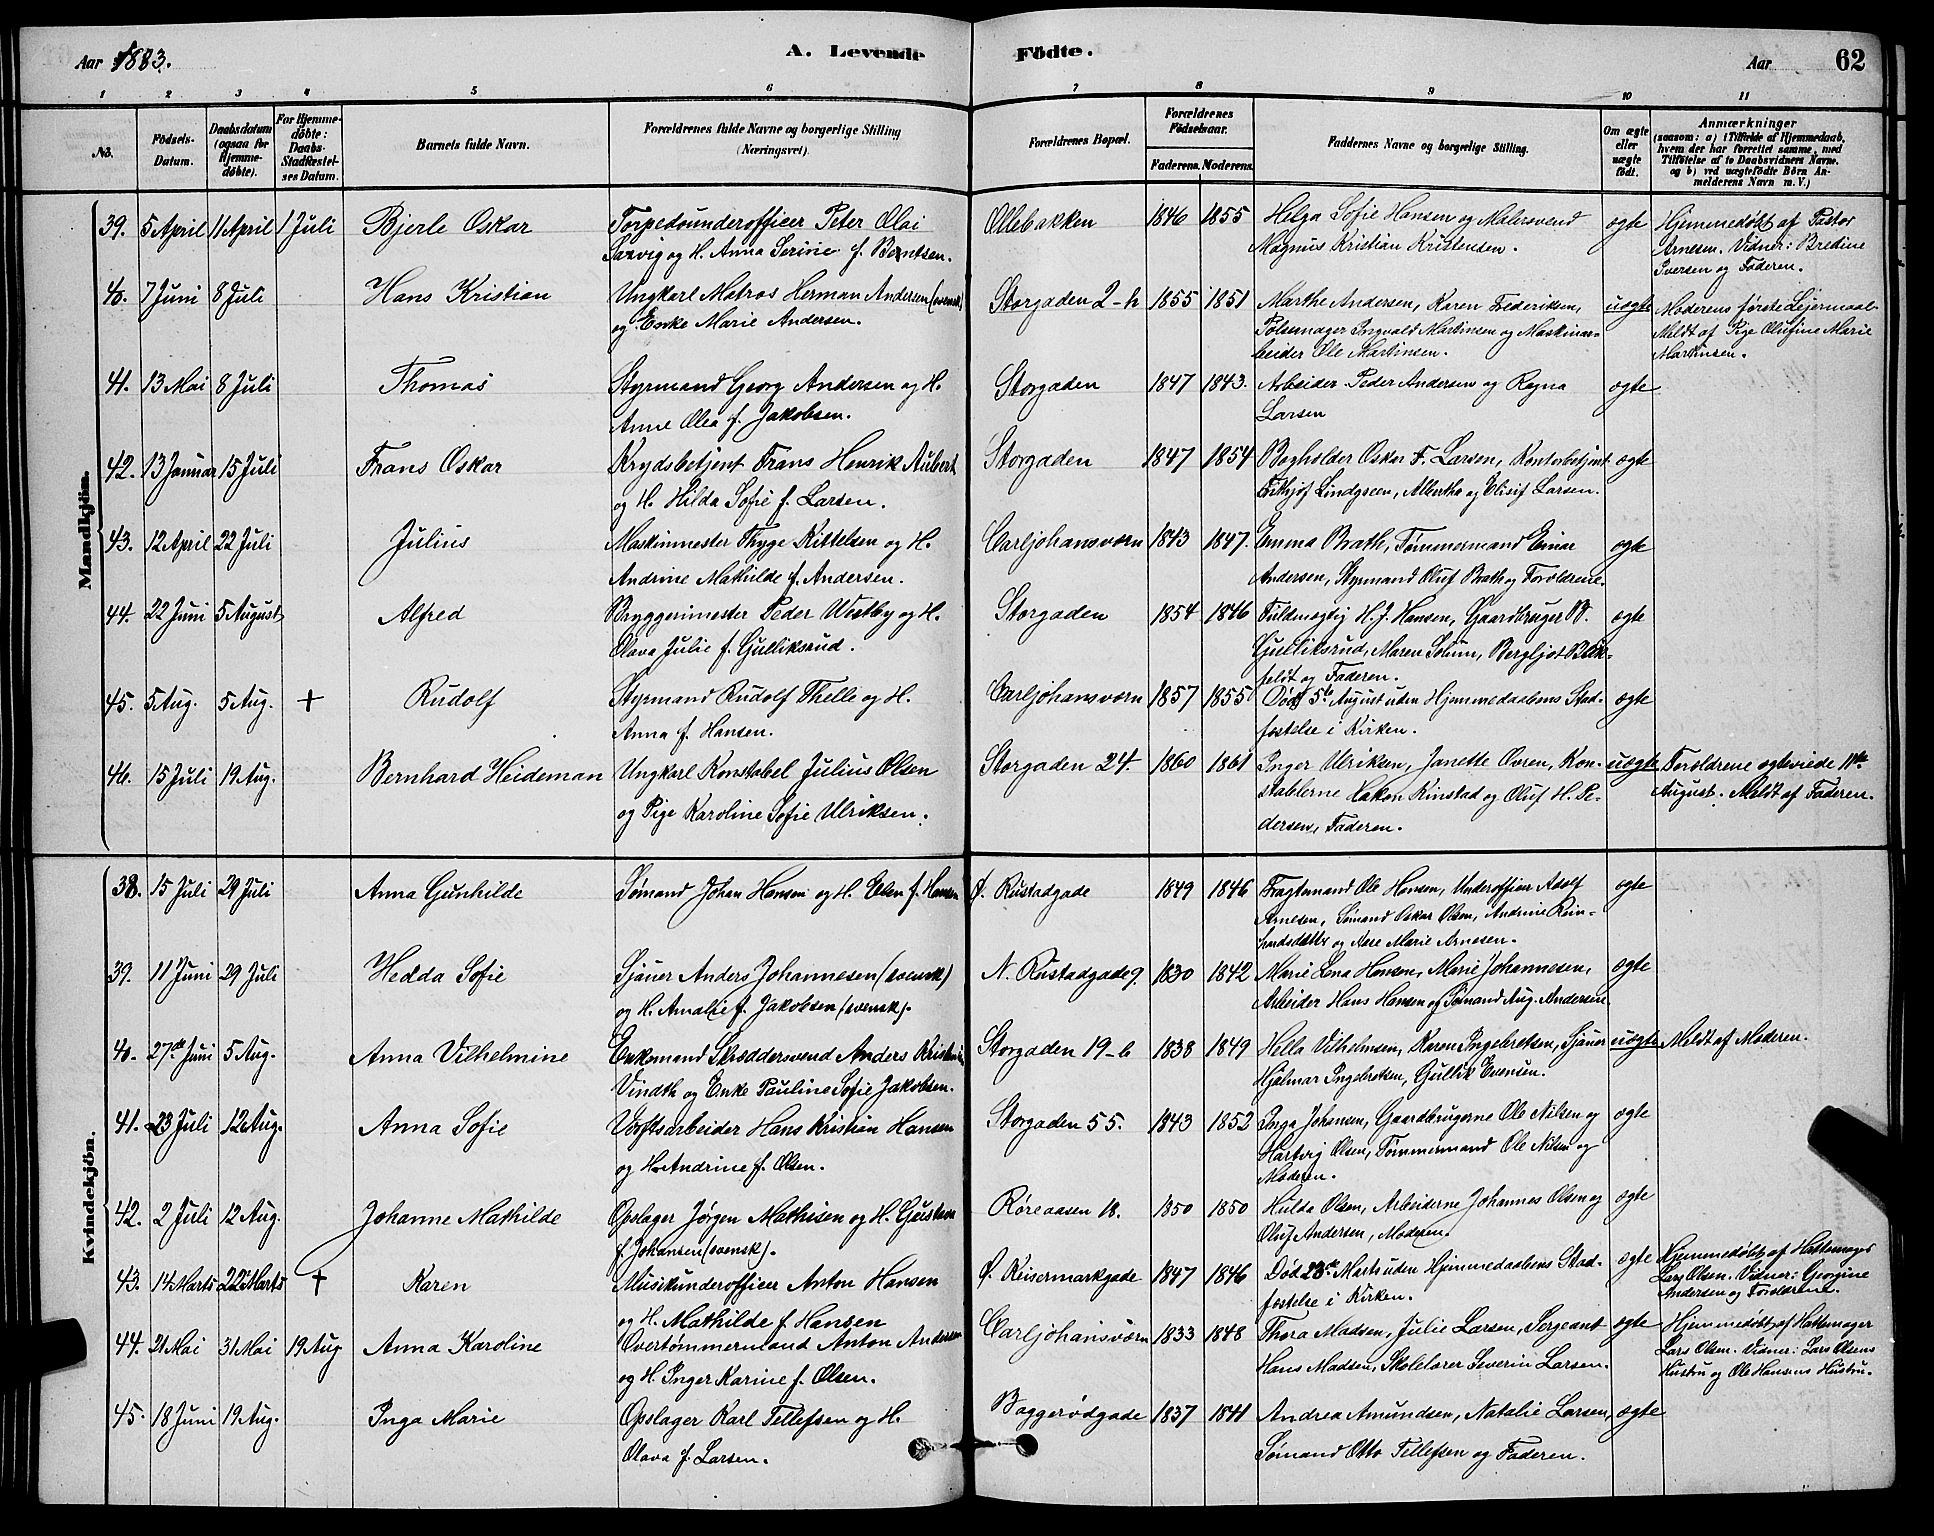 Aar 1883.
A. Levende Födte.
Aar
62
1 2 3 4 5 6 7 8 9 10 11
No.
Födsels-Datum.
Daabsdatum (ogsaa for Hjemme-døbte).
For Hjemme-døbte: Daabs-Stadfæstel-ses Datum.
Barnets fulde Navn.
Forældrenes fulde Navne og borgerlige Stilling (Næringsvei).
Forældrenes Bopæl.
Forældrenes Fødselsaar.
Faderens. Moderens.
Faddernes Navne og borgerlige Stilling.
Om ægte eller uægte født.
Anmærkninger
(saasom: a) i Tilfælde af Hjemmedaab,
hvem der har forrettet samme, med
Tilföielse af to Daabsvidners Navne.
og b) ved uægtefödte Börn An-
melderens Navn m. V.)
Mandkjön.
39. 5 April 11 April 1 Juli Bjerle Oskar Torpedounderofficer Peter Olai Ollebakken 1846 1855 Helga Sofie Hansen og Malersvend ægte Hjemmedöbt af Pastor
Sarvig og H. Anna Serine f. Berntsen. Magnus Kristian Kristensen. Arnesen. Vidner: Bredine
Iversen og Faderen.
40. 7 Juni 8 Juli Hans Kristian Ungkarl Matros Herman Andersen (svensk) Storgaden 2-h 1855 1851 Marthe Andersen, Karen Frederiksen, uægte Moderens første Leiermaal
og Enke Marie Andersen. Pølsemager Torgvald Martinsen og Maskinar- Meldt af Pige Olufine Marie
beider Ole Martinsen. Martinsen.
41. 13 Mai 8 Juli Thomas Styrmand Georg Andersen og H. Storgaden 1847 1843. Arbeider Peder Andersen og Ragna ægte
Anne Olea f. Jakobsen. Larsen
42. 13 Januar 15 Juli Frans Oskar Krydsbetjent Frans Henrik Aubert Storgaden 1847 1854 Bogholder Oskar F. Larsen, Kontorbetjent ægte
og H. Hilda Sofie f. Larsen. Frithjof Lindgreen, Albertha og Elisif Larsen.
43. 12 April 22 Juli Julius Maskinmester Thyge Kittelsen og H. Carljohansværn 1843 1847. Emma Brath, Tømmermand Einar ægte
Andrine Mathilde f. Andersen. Andersen, Styrmand Oluf Brath og Forældrene.
44. 22 Juni 5 August Alfred Bryggerimester Peder Westby og H. Storgaden 1854 1846 Fuldmægtig H. J. Hansen, Gaardbruger B. ægte
Olava Julie f. Gulliksrud. Gulliksrud, Maren Solum, Bergljot Blik-
feldt og Faderen.
45. 5 Aug. 5 Aug. + Rudolf Styrmand Rudolf Thelle og H. Carljohansværn 1857 1855 Död 5te August uden Hjemmedaabens Stad- ægte
Anna f. Hansen. fæstelse i Kirken.
46. 15 Juli 19 Aug. Bernhard Heideman Ungkarl Konstabel Julius Olsen Storgaden 24. 1860 1861 Inger Ulriksen, Janette Ovren, Kon- uægte Forældrene ægteviede 11te
og Pige Karoline Sofie Ulriksen. stablerne Hakon Rinstad og Oluf H. Pe- August. Meldt af Faderen.
dersen, Faderen.
Kvindekjön.
38. 15 Juli 29 Juli Anna Gunhilde Sømand Johan Hansen og H. Ellen f. Hansen Ø. Rustadgade 1849 1846 Fragtemand Ole Hansen, Underofficer Adolf ægte
Arnesen, Sømand Oskar Olsen, Andrine Rein-
hardsdatter og Aase Marie Arnesen.
39. 11 Juni 29 Juli Hedda Sofie Sjauer Anders Johannesen (svensk) N. Rustadgade 9. 1830 1842 Marie Lena Hansen, Marie Johannesen, ægte
og H. Amalie f. Jakobsen (svensk). Arbeider Hans Hansen og Sømand Aug. Andersen.
40. 27de Juni 5 Aug. Anna Vilhelmine Enkemand Skræddersvend Anders Kristian Storgaden 19-b 1838 1849 Hella Vilhelmsen, Karen Ingebretsen, Sjauer uægte Meldt af Moderen.
Vindth og Enke Pauline Sofie Jakobsen. Hjalmar Ingebretsen, Gullik Evensen.
41. 23 Juli 12 Aug. Anna Sofie Værftsarbeider Hans Kristian Hansen Storgaden 55. 1843 1852 Inga Johansen, Gaardbrugerne Ole Nilsen og ægte
og H. Andrine f. Olsen. Hartvig Olsen, Tømmermand Ole Nilsen og
Moderen.
42. 2 Juli 12 Aug. Johanne Mathilde Opslager Jørgen Mathisen og H. Gustava Røreaasen 18. 1850 1850 Hulda Olsen, Arbeiderne Johannes Olsen og ægte
f. Johansen (svensk). Oluf Andersen, Moderen.
43. 14 Marts 22 Marts + Karen Musikunderofficer Anton Hansen Ø. Keisermarkgade 1847 1846 Död 23de Marts uden Hjemmedaabens Stad- ægte Hjemmedöbt af Hattemager
og H. Mathilde f. Hansen fæstelse i Kirken. Lars Olsen. Vidner: Georgine
Andersen og Forældrene.
44. 21 Mai 31 Mai 19 Aug Anna Karoline Overtømmermand Anton Andersen Carljohansværn 1833 1848 Thora Madsen, Julie Larsen, Sergeant ægte Hjemmedöbt af Hattemager
og H. Inger Karine f. Olsen. Hans Madsen, Skolelærer Severin Larsen. Lars Olsen. Vidner: Lars Olsens
Hustru og Ole Hansens Hustru.
45. 18 Juni 19 Aug. Inga Marie Opslager Karl Tellefsen og H. Baggerødgade 1837 1841 Andrea Amundsen, Natalie Larsen, ægte
Olava f. Larsen. Sømand Otto Tellefsen og Faderen.